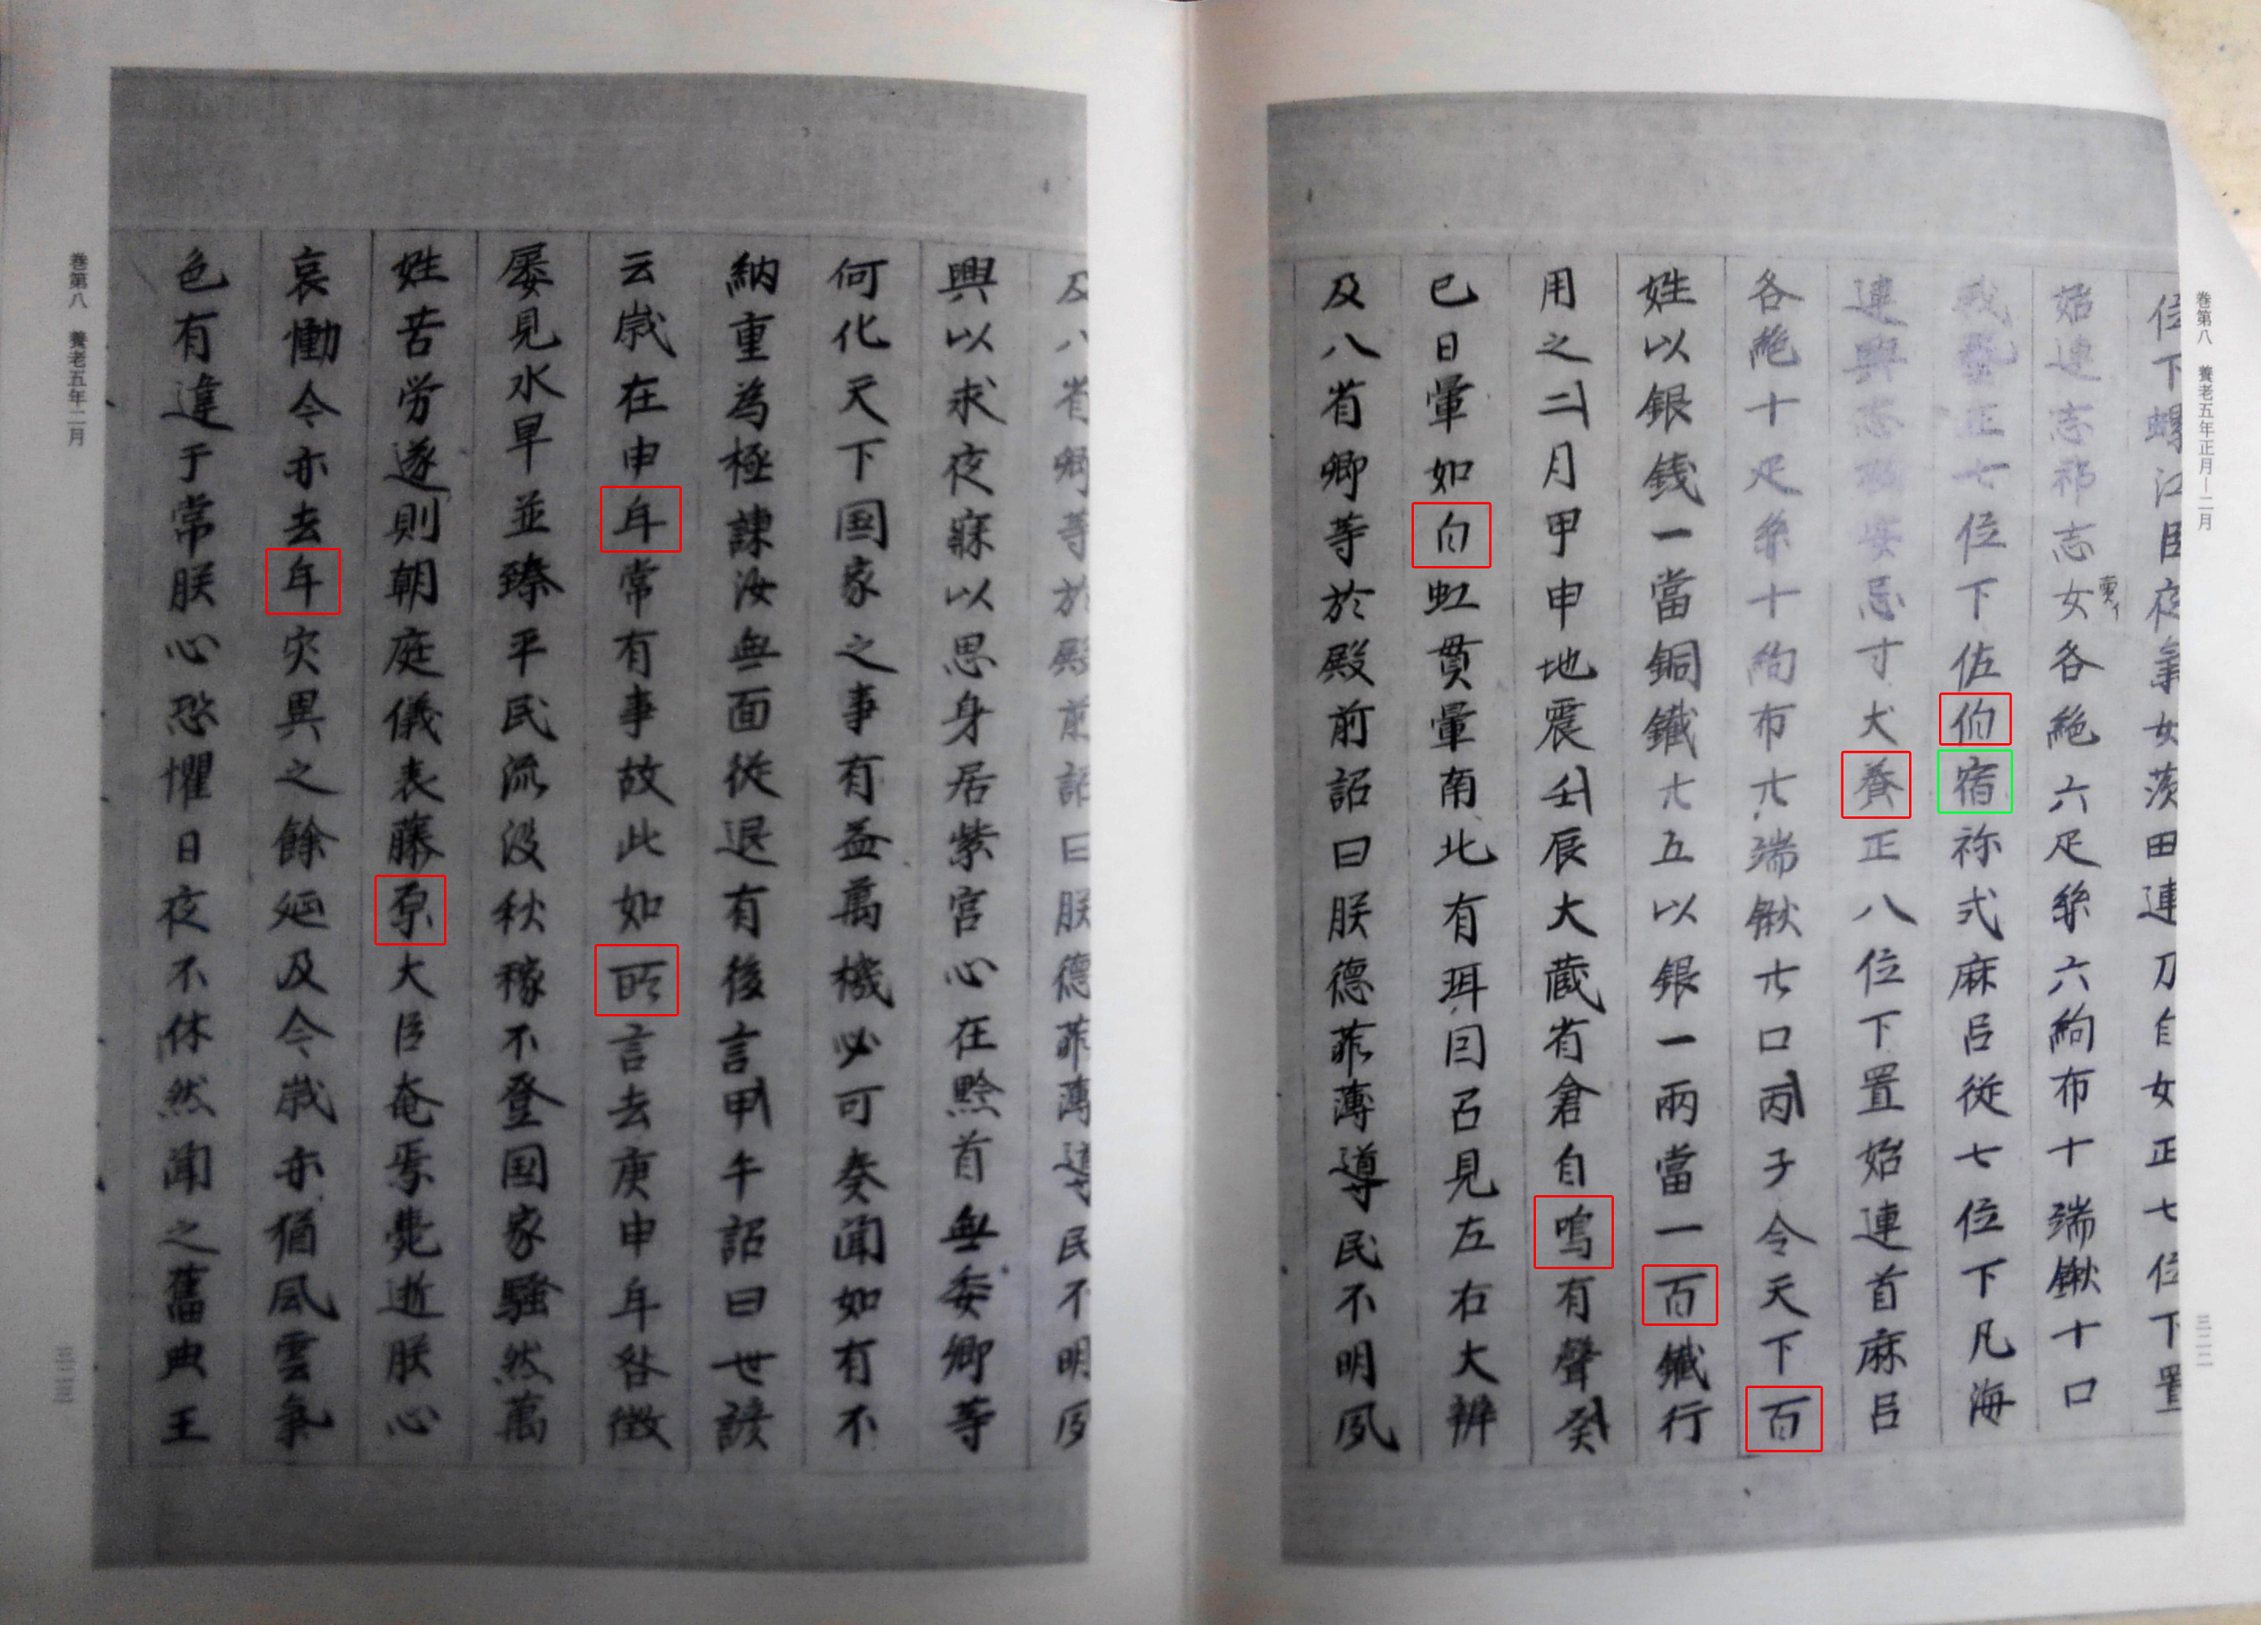 巻第八　養老五年正月―二月
位下螺江臣夜氣女茨田連刀自女正七位下置
始連志祁志女各絁六疋絲六絇布十端鍬十口
賣イ
我𫝆正七位下佐伯宿祢式麻呂従七位下凡海
連興志 安忌寸犬養正八位下置始連首麻呂
各絁十疋絲十絇布廿端鍬廿口丙子令天下百
姓以銀銭一當銅鐵廿五以銀一兩當一百鐵行
用之二月甲申地震壬辰大蔵省倉自鳴有聲癸
巳日暈如白虹貫暈南北有珥因召見左右大辨
及八省卿等於殿前詔曰朕德菲薄導民不明夙
三二二
及八省卿等於殿前詔曰朕德菲薄導民不明夙
興以求夜寐以思身居紫宮心在黔首無委卿等
何化天下国家之事有益萬機必可奏聞如有不
納重為極諫汝無面従退有後言甲午詔曰世諺
云歳在申年常有事故此如所言去庚申年咎徴
屡見水旱並臻平民流没秋稼不登国家騒然萬
姓苦労遂則朝庭儀表藤原大臣奄焉薨逝朕心
哀慟今亦去年灾異之餘延及今歳亦猶風雲氣
色有違于常朕心恐懼日夜不休然聞之舊典王
巻第八　養老五年二月
三二三